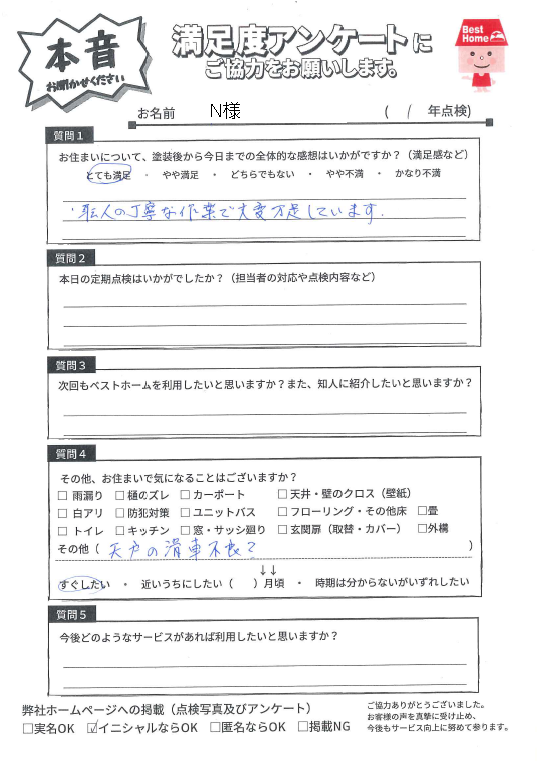 本音
お聞かせください
満足度アンケートに
ご協力をお願いします。
Best Home
お名前 N様 ( / 年点検)
質問1
お住まいについて、塗装後から今日までの全体的な感想はいかがですか？（満足感など）
とても満足 ・ やや満足 ・ どちらでもない ・ やや不満 ・ かなり不満
・職人の丁寧な作業で大変万足しています.
質問2
本日の定期点検はいかがでしたか？（担当者の対応や点検内容など）
質問3
次回もベストホームを利用したいと思いますか？また、知人に紹介したいと思いますか？
質問4
その他、お住まいで気になることはございますか？
□ 雨漏り □ 樋のズレ □ カーポート □ 天井・壁のクロス（壁紙）
□ 白アリ □ 防犯対策 □ ユニットバス □ フローリング・その他床 □畳
□ トイレ □ キッチン □ 窓・サッシ廻り □ 玄関扉（取替・カバー） □外構
その他（ 天戸の滑車不良？ ）
↓↓
すぐしたい ・ 近いうちにしたい（ ）月頃 ・ 時期は分からないがいずれしたい
質問5
今後どのようなサービスがあれば利用したいと思いますか？
弊社ホームページへの掲載（点検写真及びアンケート）
□実名OK ☑イニシャルならOK □匿名ならOK □掲載NG
ご協力ありがとうございました。
お客様の声を真摯に受け止め、
今後もサービス向上に努めて参ります。